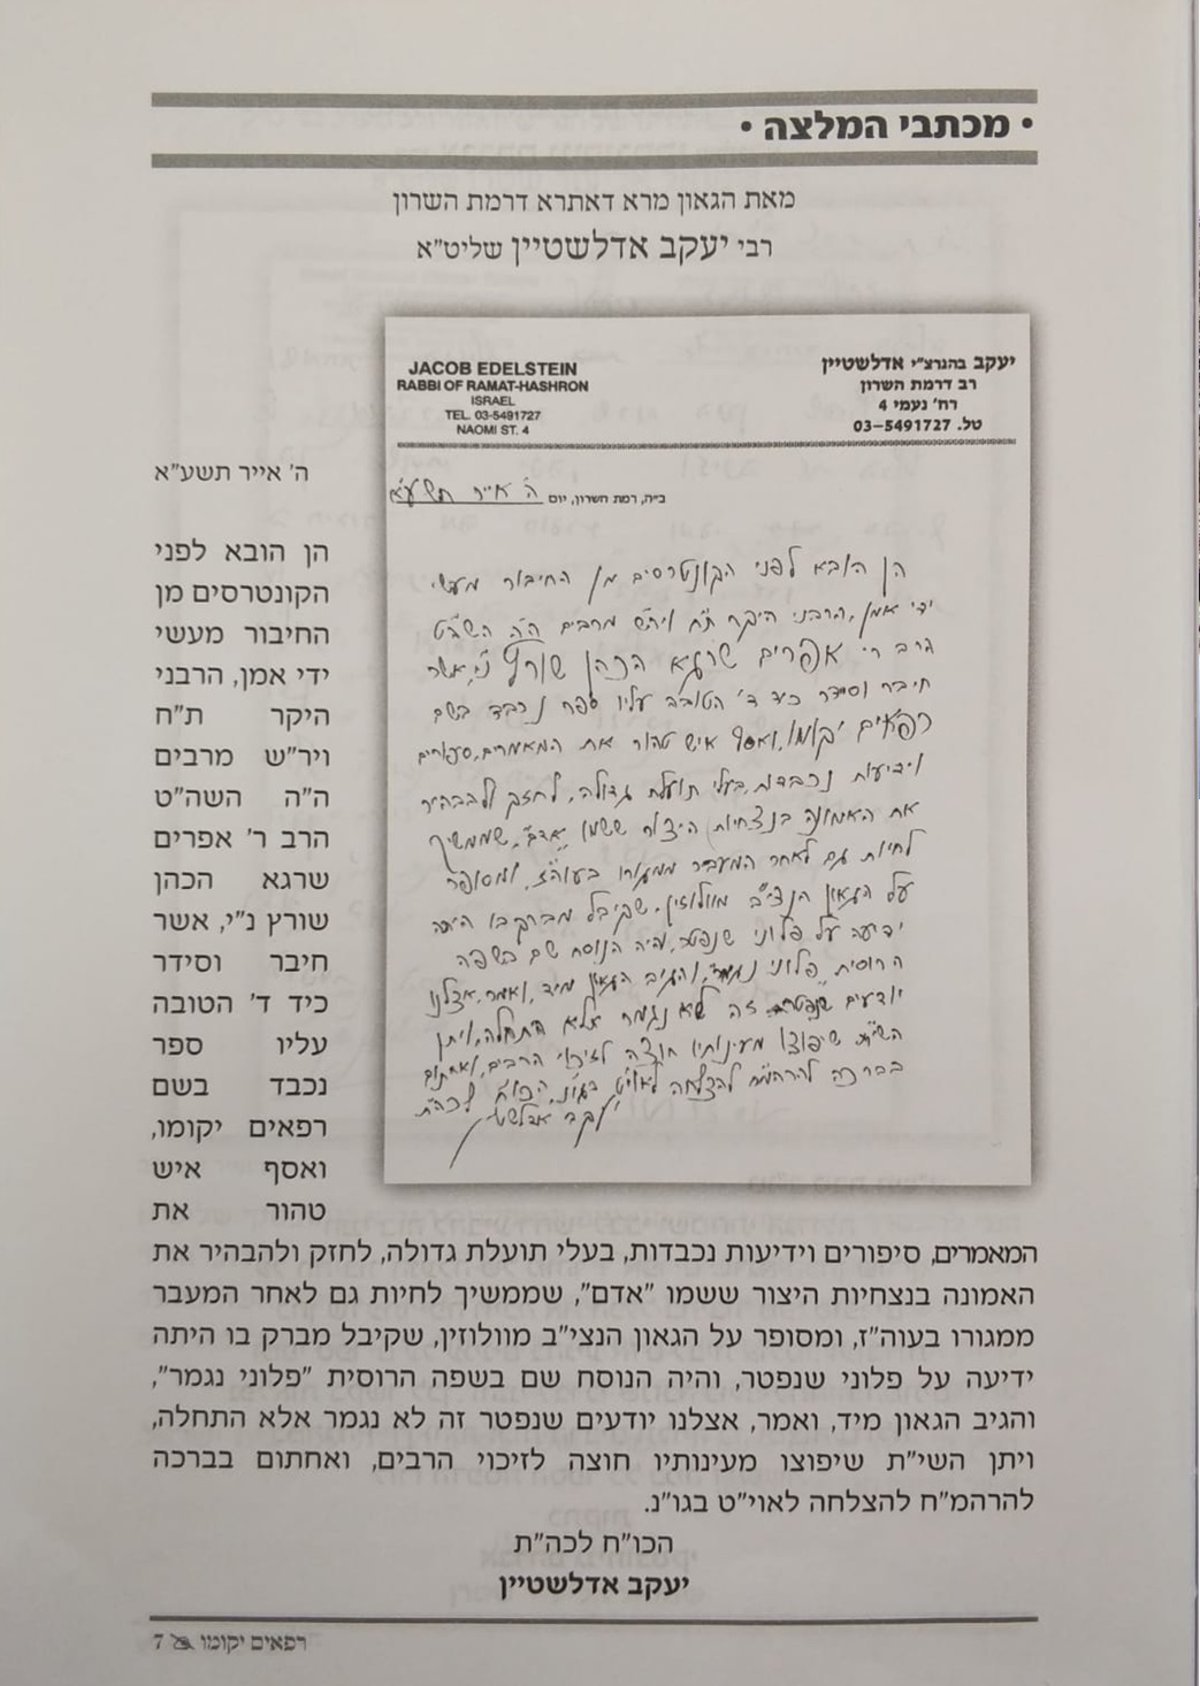 • מכתבי המלצה •
מאת הגאון מרא דאתרא דרמת השרון
רבי יעקב אדלשטיין שליט"א
יעקב בהגרצ"י אדלשטיין
רב דרמת השרון
רח' נעמי 4
טל. 03-5491727
JACOB EDELSTEIN
RABBI OF RAMAT-HASHRON
ISRAEL
TEL. 03-5491727
NAOMI ST. 4
ב"ה, רמת השרון, יום ה' אייר תשע"א
הן הובא לפני הקונטרסים מן החיבור מעשי
ידי אמן, הרבני היקר ת"ח ויר"ש מרבים ה"ה השה"ט
הרב ר' אפרים שרגא הכהן שורץ נ"י, אשר
חיבר וסידר כיד ד' הטובה עליו ספר נכבד בשם
רפאים יקומו, ואסף איש טהור את המאמרים, סיפורים
וידיעות נכבדות, בעלי תועלת גדולה, לחזק ולהבהיר
את האמונה בנצחיות היצור ששמו "אדם", שממשיך
לחיות גם לאחר המעבר ממגורו בעוה"ז, ומסופר
על הגאון הנצי"ב מוולוזין, שקיבל מברק בו היתה
ידיעה על פלוני שנפטר, והיה הנוסח שם בשפה
הרוסית "פלוני נגמר", והגיב הגאון מיד, ואמר, אצלנו
יודעים שנפטר זה לא נגמר אלא התחלה, ויתן
השי"ת שיפוצו מעינותיו חוצה לזיכוי הרבים, ואחתום
בברכה להרהמ"ח להצלחה לאוי"ט בגו"נ. הכו"ח לכה"ת
יעקב אדלשטיין
ה' אייר תשע"א
הן הובא לפני
הקונטרסים מן
החיבור מעשי
ידי אמן, הרבני
היקר ת"ח
ויר"ש מרבים
ה"ה השה"ט
הרב ר' אפרים
שרגא הכהן
שורץ נ"י, אשר
חיבר וסידר
כיד ד' הטובה
עליו ספר
נכבד בשם
רפאים יקומו,
ואסף איש
טהור את
המאמרים, סיפורים וידיעות נכבדות, בעלי תועלת גדולה, לחזק ולהבהיר את
האמונה בנצחיות היצור ששמו "אדם", שממשיך לחיות גם לאחר המעבר
ממגורו בעוה"ז, ומסופר על הגאון הנצי"ב מוולוזין, שקיבל מברק בו היתה
ידיעה על פלוני שנפטר, והיה הנוסח שם בשפה הרוסית "פלוני נגמר",
והגיב הגאון מיד, ואמר, אצלנו יודעים שנפטר זה לא נגמר אלא התחלה,
ויתן השי"ת שיפוצו מעינותיו חוצה לזיכוי הרבים, ואחתום בברכה
להרהמ"ח להצלחה לאוי"ט בגו"נ.
הכו"ח לכה"ת
יעקב אדלשטיין
רפאים יקומו 7